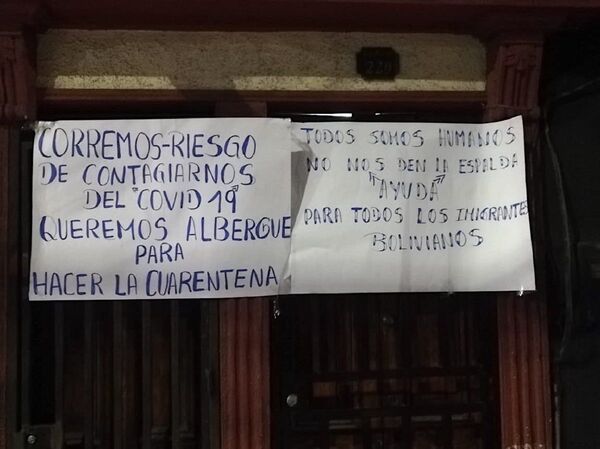 220
CORREMOS-RIESGO
DE CONTAGIARNOS
DEL "COVID 19"
QUEREMOS ALBERGUE
PARA
HACER LA CUARENTENA
TODOS SOMOS HUMANOS
NO NOS DEN LA ESPALDA
"AYUDA"
PARA TODOS LOS IMIGRANTES
BOLIVIANOS